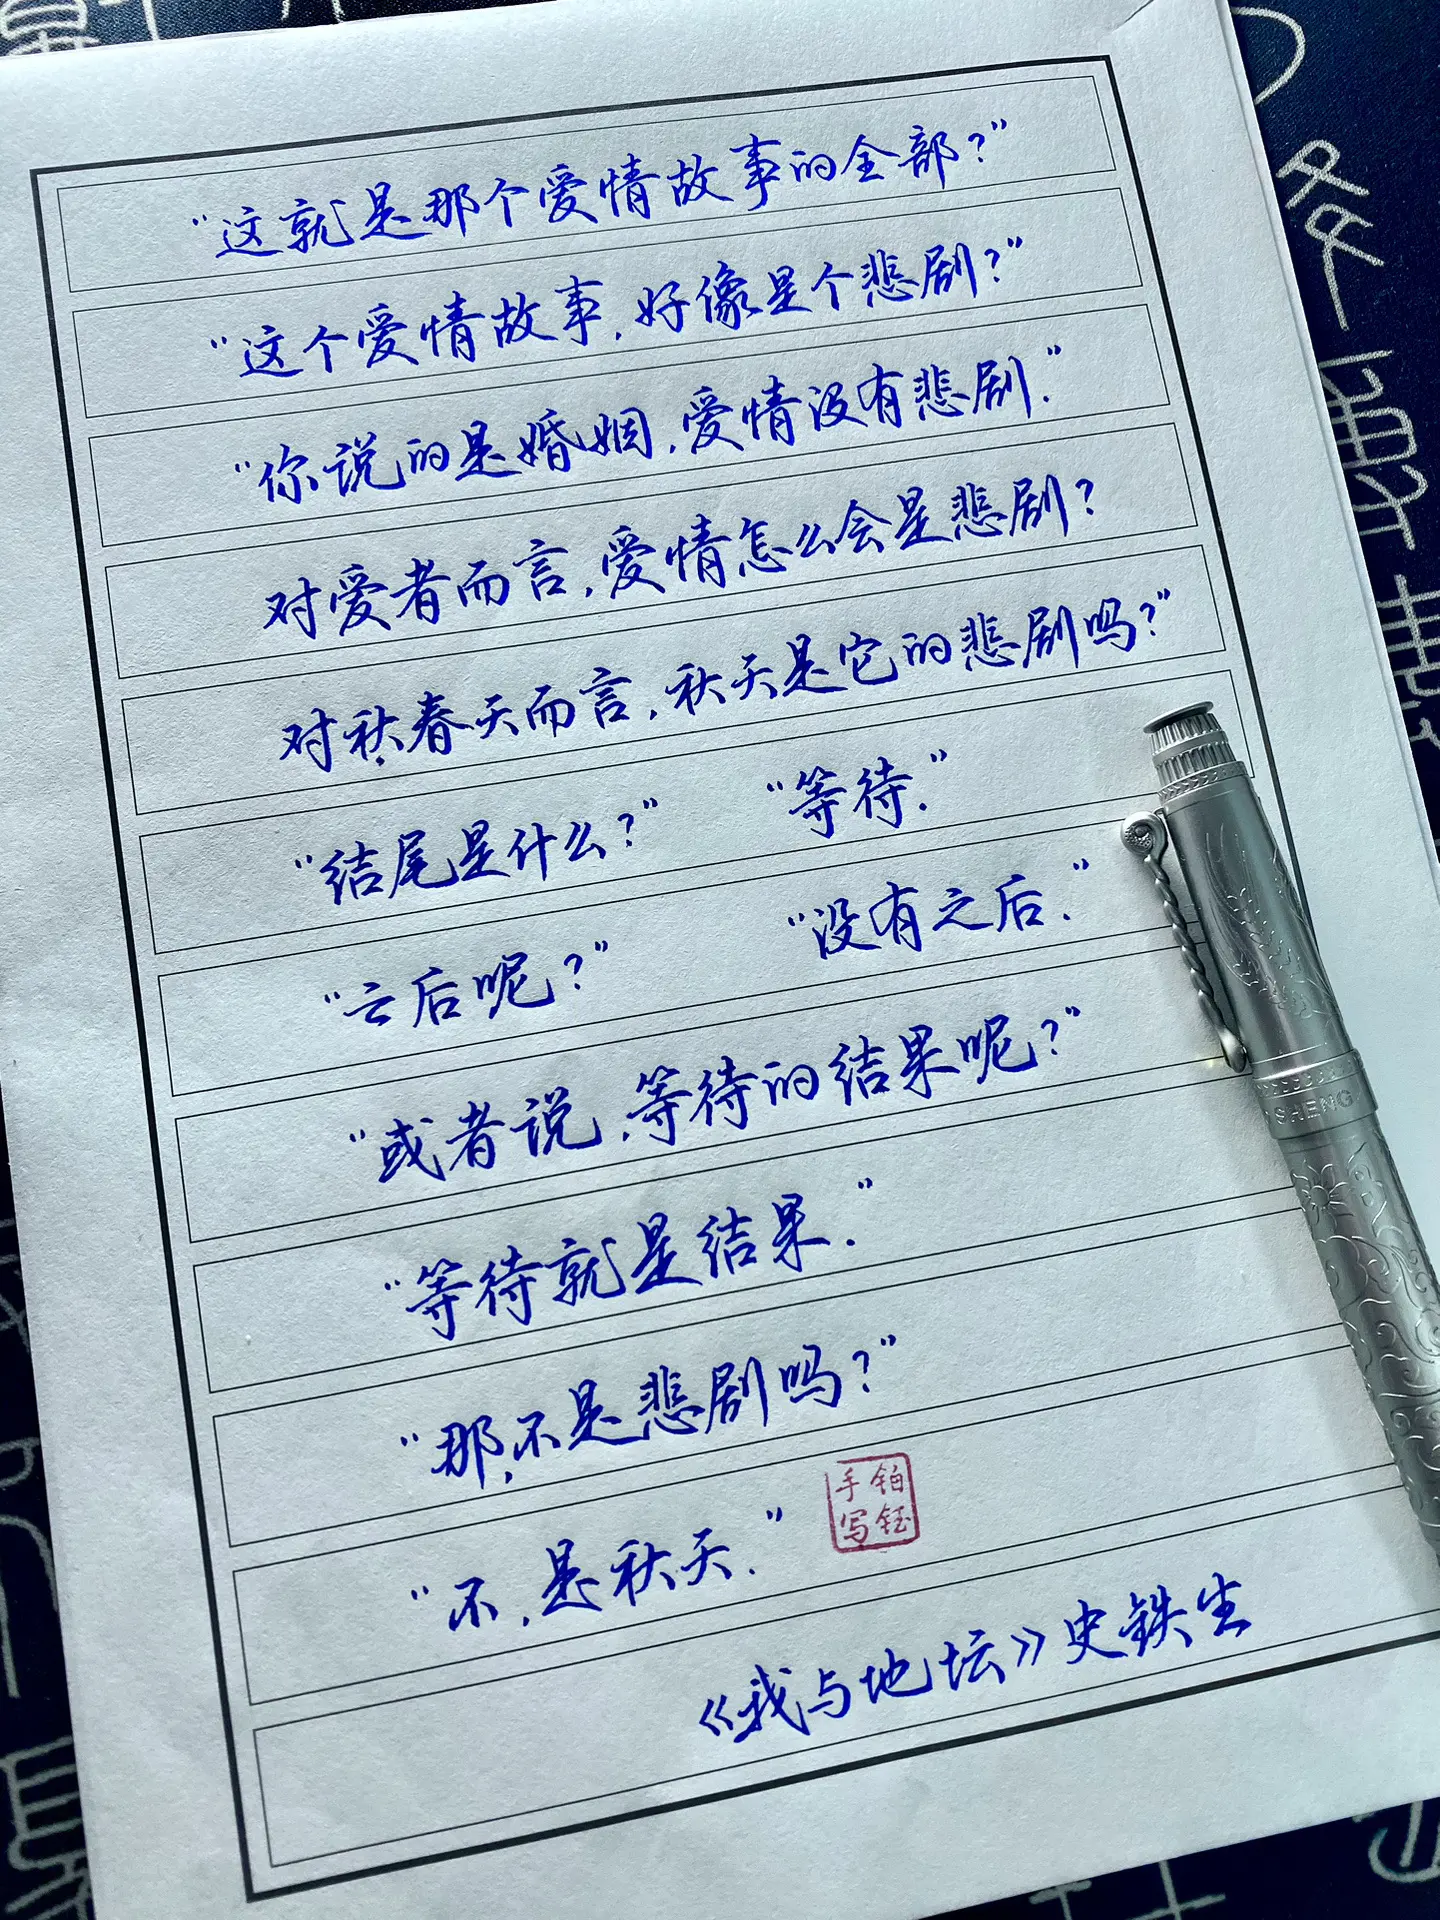 “这就是那个爱情故事的全部？”
“这个爱情故事，好像是个悲剧？”
“你说的是婚姻，爱情没有悲剧.”
对爱者而言，爱情怎么会是悲剧？
对秋春天而言，秋天是它的悲剧吗？”
“结尾是什么？” “等待.”
“之后呢？” “没有之后.”
“或者说，等待的结果呢？”
“等待就是结果.”
“那，不是悲剧吗？”
“不，是秋天.”
手写 铂钰
《我与地坛》史铁生
SHENG